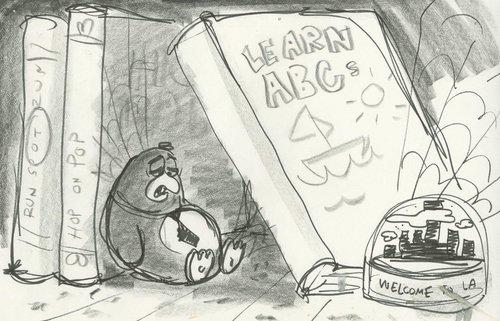 RUN SPOT RUN!
HOP ON POP
LEARN
ABCs
WELCOME TO LA